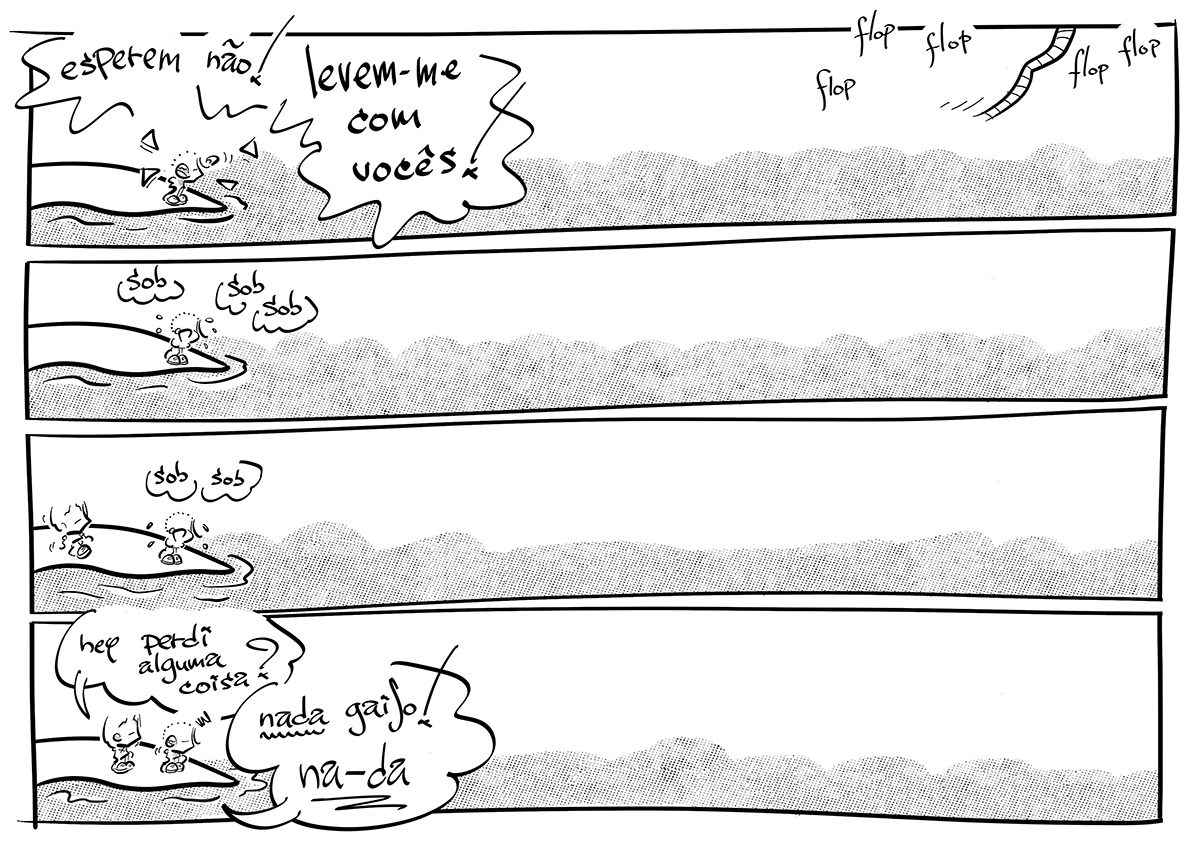 esperem não!
levem-me
com
vocês!
flop
flop
flop
flop
flop
sob
sob
sob
sob
sob
hey perdi
alguma
coisa?
nada gaijo!
na-da